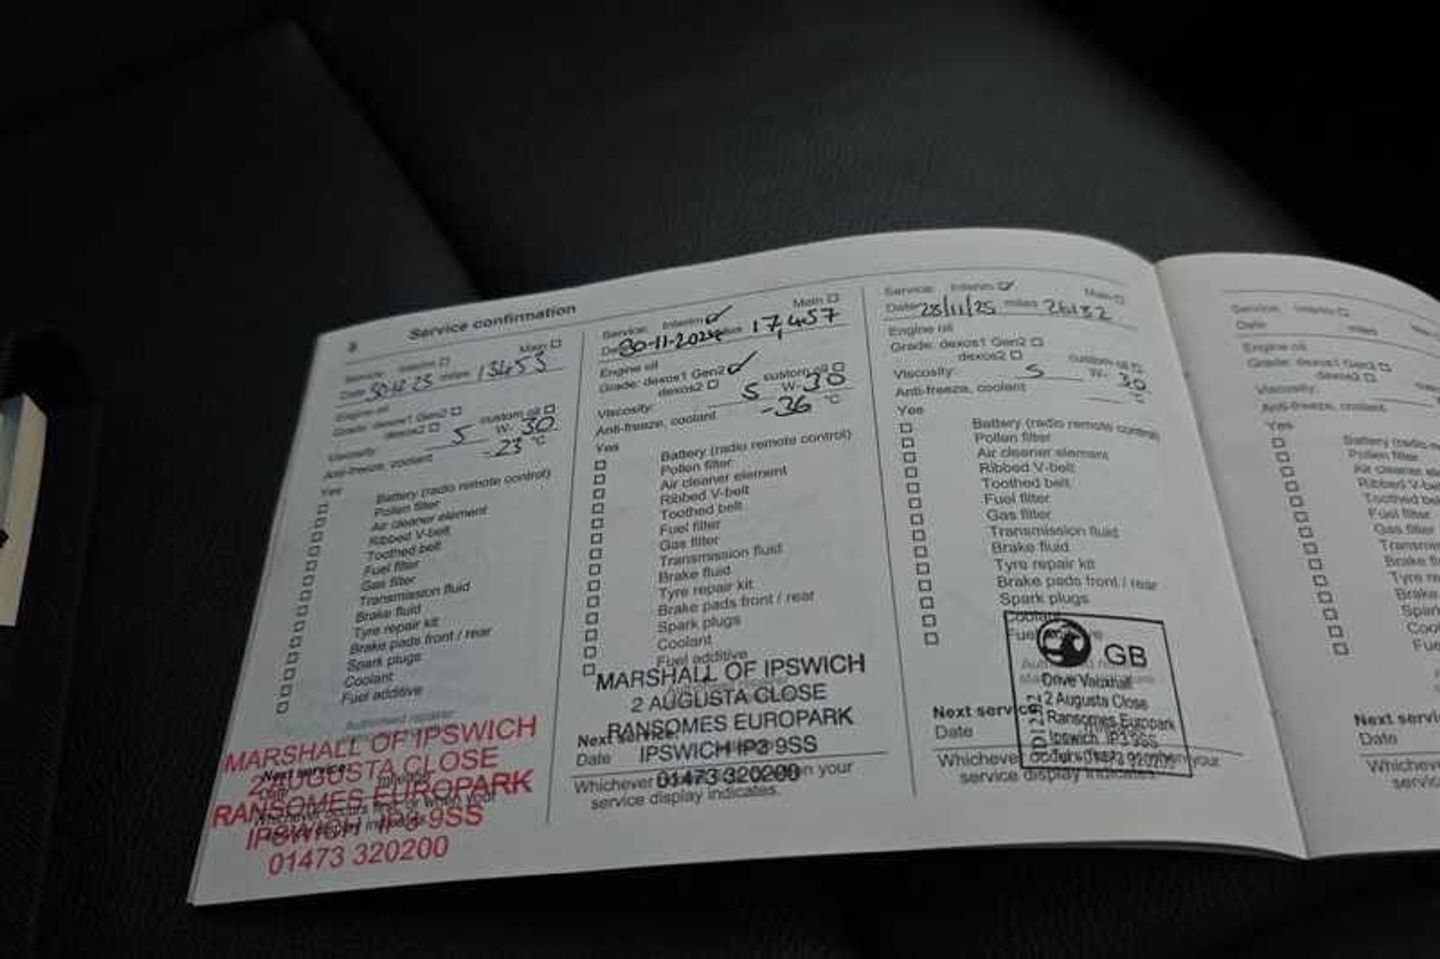 8 Service confirmation
Service: Interim Main
Date miles 13453
Engine oil
Grade: dexos1 Gen2 custom oil
dexos2
Viscosity: 5 W- 30
Anti-freeze, coolant -23 °C
Yes
Battery (radio remote control)
Pollen filter
Air cleaner element
Ribbed V-belt
Toothed belt
Fuel filter
Gas filter
Transmission fluid
Brake fluid
Tyre repair kit
Brake pads front / rear
Spark plugs
Coolant
Fuel additive
MARSHALL OF IPSWICH
2 AUGUSTA CLOSE
RANSOMES EUROPARK
IPSWICH IP3 9SS
01473 320200
Service: Interim Main
30-11-2024 17,457
Engine oil
Grade: dexos1 Gen2 custom oil
dexos2
Viscosity: 5 W- 30
Anti-freeze, coolant -36 °C
Yes
Battery (radio remote control)
Pollen filter
Air cleaner element
Ribbed V-belt
Toothed belt
Fuel filter
Gas filter
Transmission fluid
Brake fluid
Tyre repair kit
Brake pads front / rear
Spark plugs
Coolant
Fuel additive
MARSHALL OF IPSWICH
2 AUGUSTA CLOSE
RANSOMES EUROPARK
IPSWICH IP3 9SS
01473 320200
Next service
Date
Whichever your
service display indicates.
Service: Interim Main
Date 28/11/25 miles 26182
Engine oil
Grade: dexos1 Gen2
dexos2 custom oil
Viscosity: 5 W- 30
Anti-freeze, coolant °C
Yes
Battery (radio remote control)
Pollen filter
Air cleaner element
Ribbed V-belt
Toothed belt
Fuel filter
Gas filter
Transmission fluid
Brake fluid
Tyre repair kit
Brake pads front / rear
Spark plugs
Coolant
GB
Drive Vauxhall
2 Augusta Close
Ransomes Europark
Ipswich IP3 9SS
Next service
Date
Whichever your
service display indicates.
Service: Interim
Date miles
Engine oil
Grade: dexos1 Gen2
dexos2
Viscosity:
Anti-freeze, coolant
Yes
Battery (radio
Pollen filter
Air cleaner
Ribbed V-belt
Toothed
Fuel filter
Gas filter
Brake
Tyre
Brake
Next
Date
service